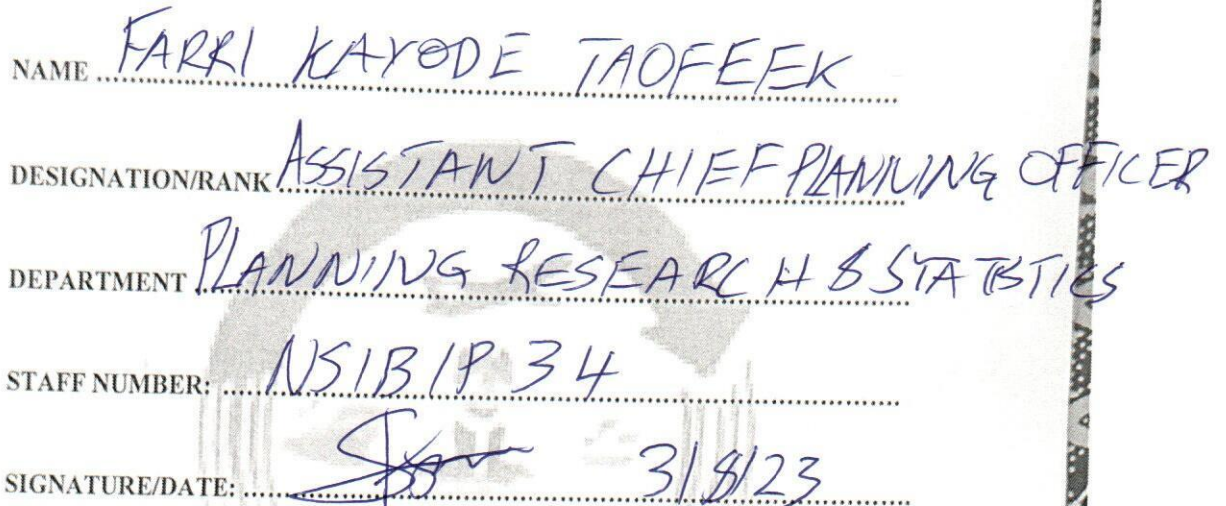 NAME FARRI KAYODE TAOFEEK
DESIGNATION/RANK ASSISTANT CHIEF PLANNING OFFICER
DEPARTMENT PLANNING RESEARCH & STATISTICS
STAFF NUMBER: NSIB/P 34
SIGNATURE/DATE: 3/8/23